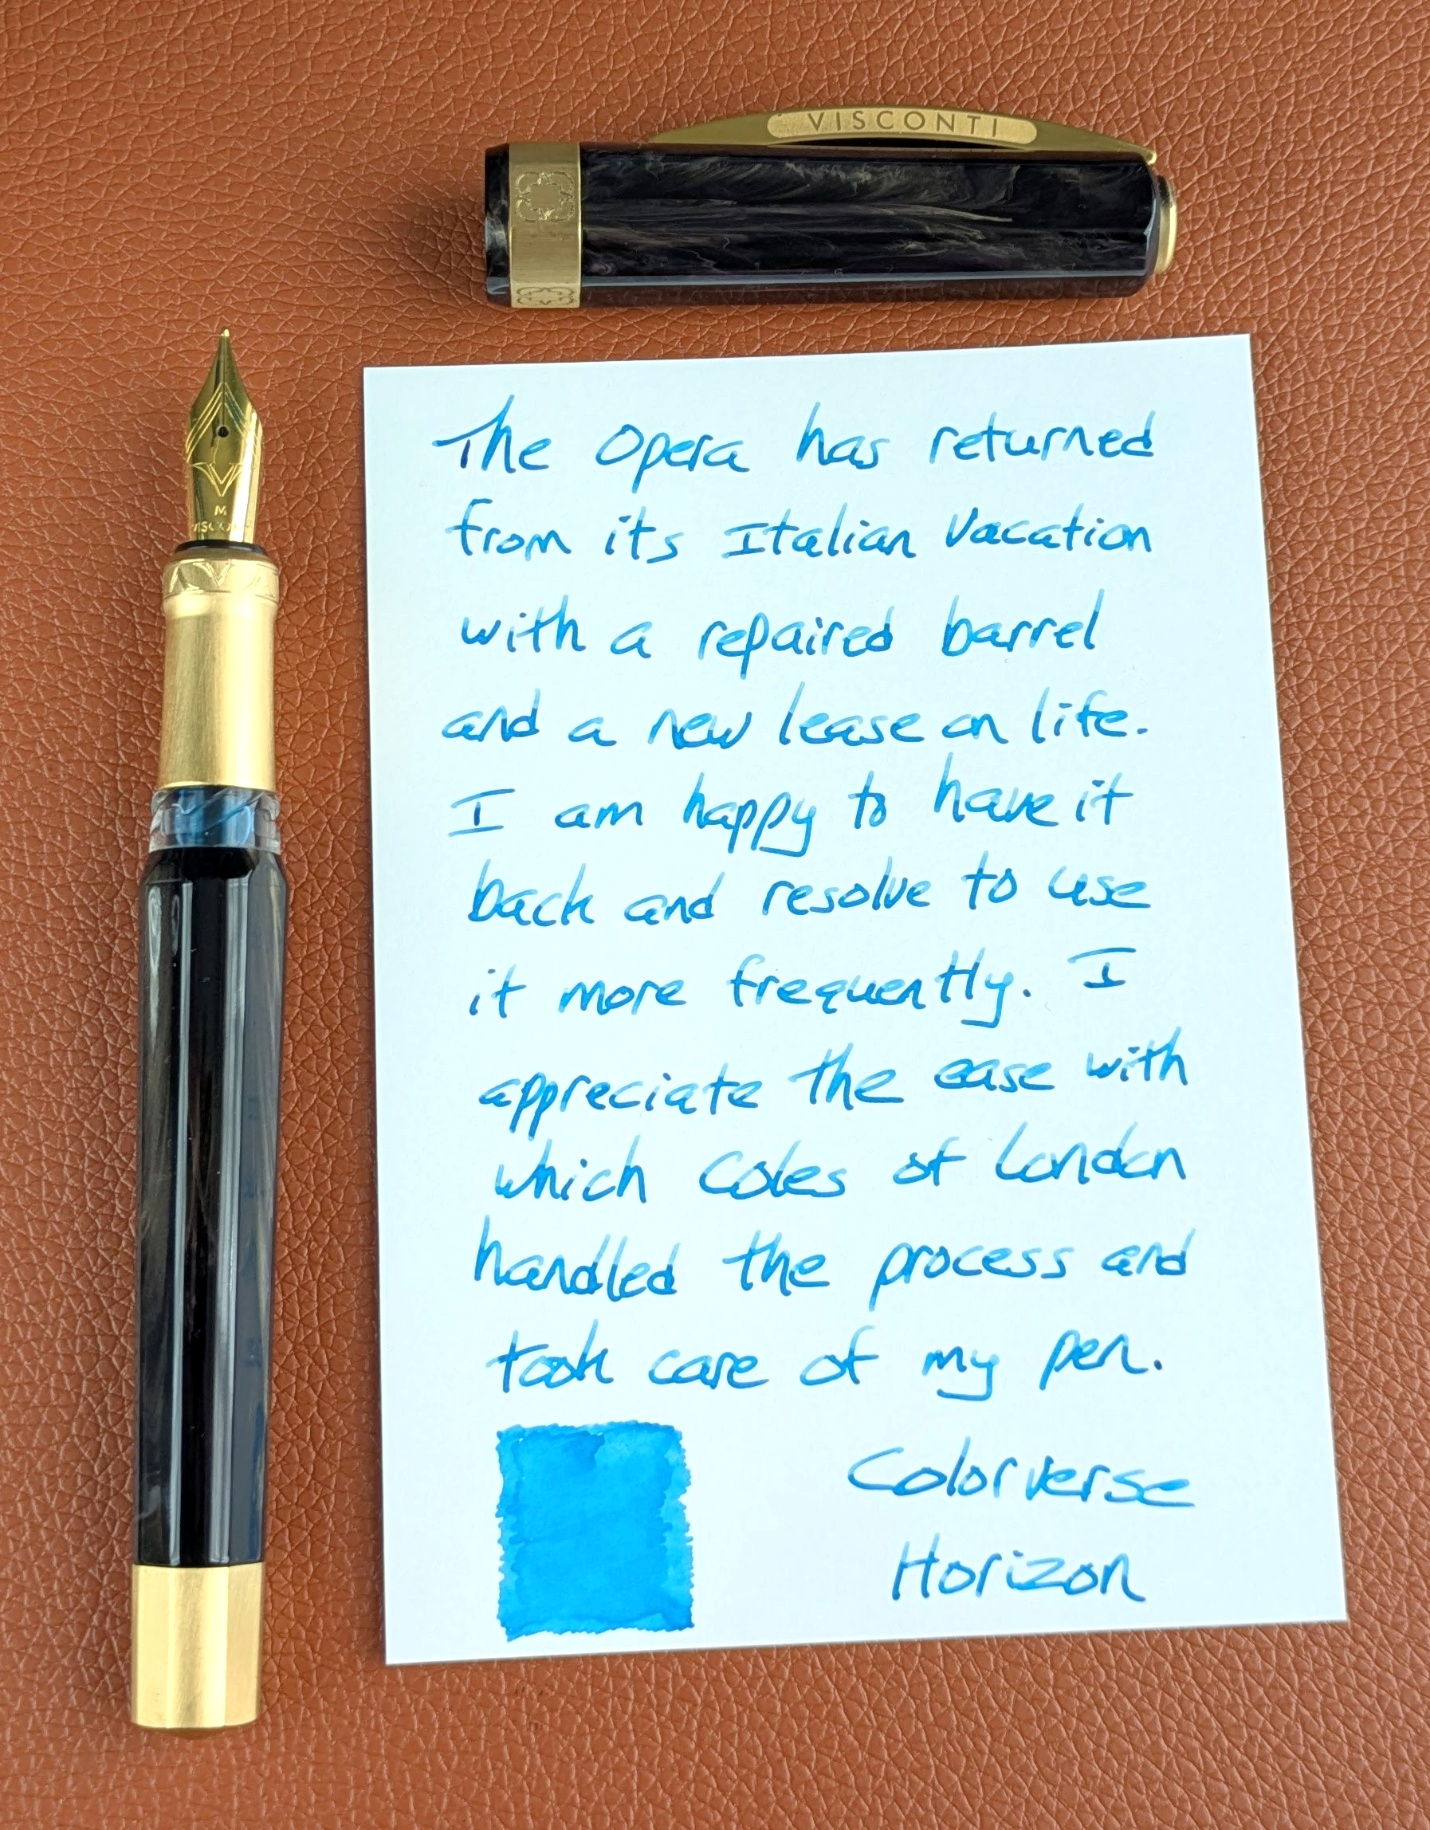 VISCONTI
M
VISCONTI
The Opera has returned
from its Italian Vacation
with a repaired barrel
and a new lease on life.
I am happy to have it
back and resolve to use
it more frequently. I
appreciate the ease with
which Coles of London
handled the process and
took care of my pen.
Colorverse
Horizon